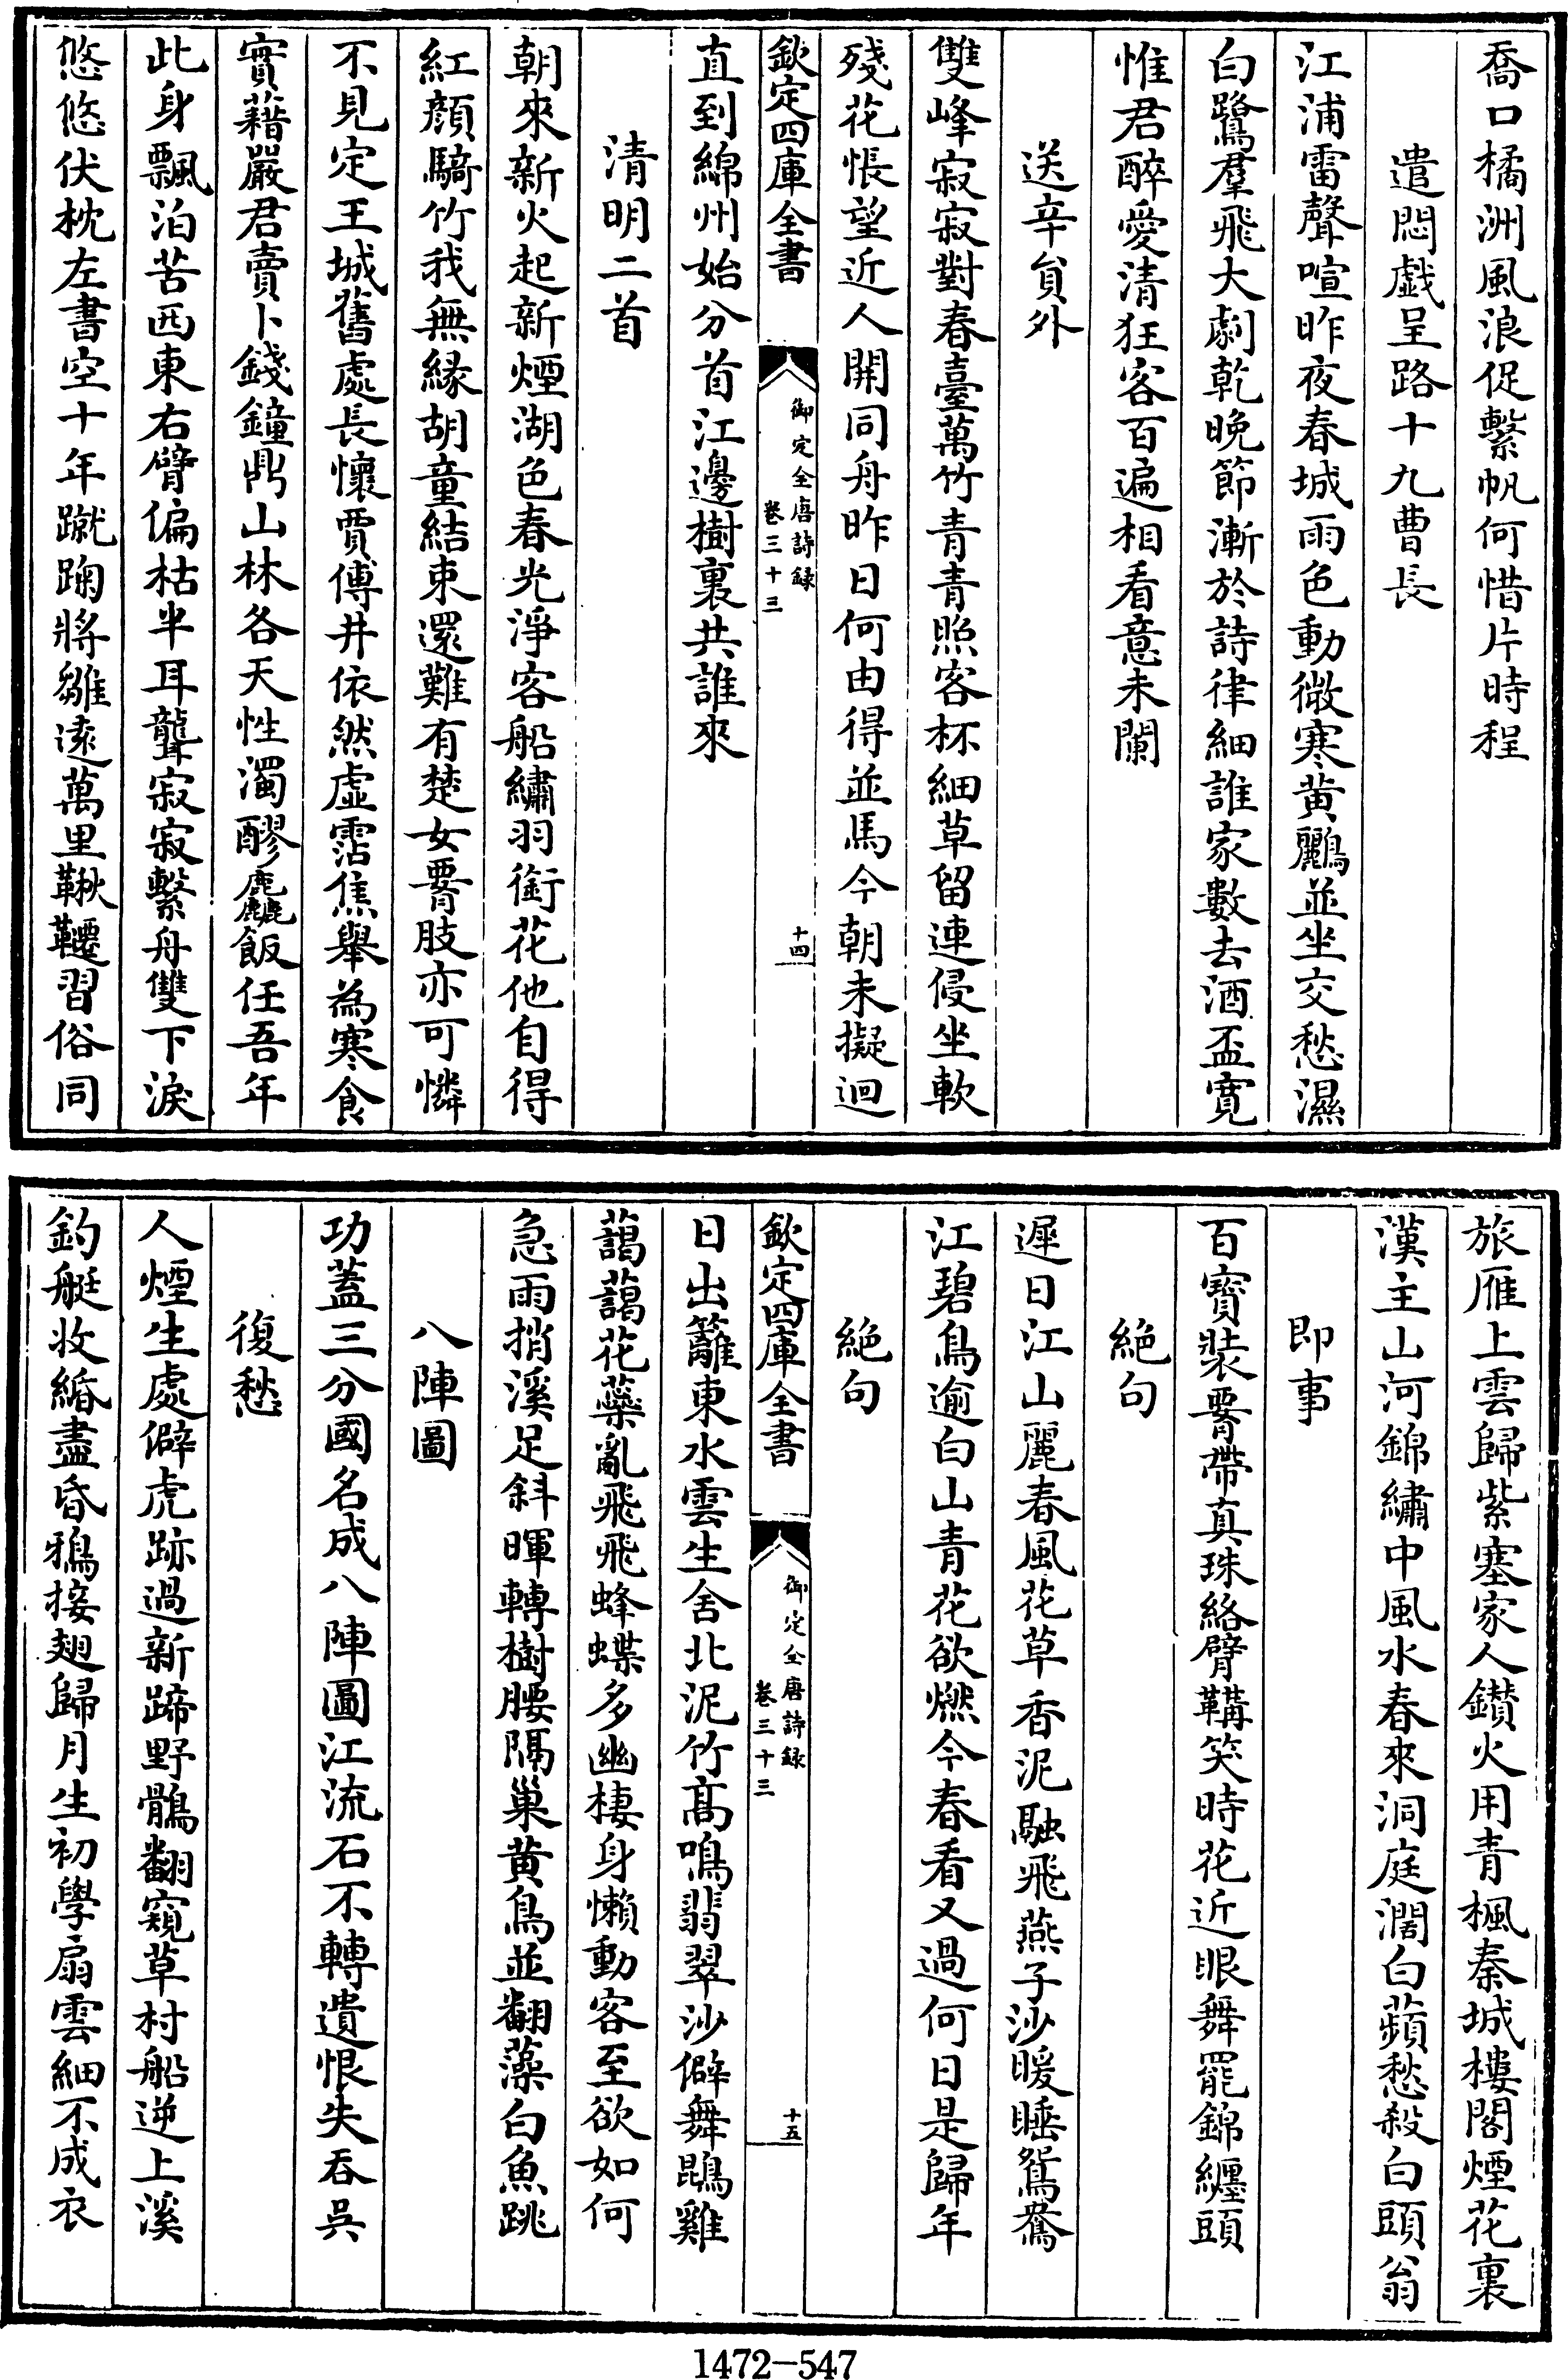 喬口橘洲風浪促繫帆何惜片時程
遣悶戲呈路十九曹長
江浦雷聲喧昨夜春城雨色動微寒黄鸝並坐交愁濕
白鷺羣飛大劇乾晚節漸於詩律細誰家數去酒盃寛
惟君醉愛清狂客百遍相看意未闌
送辛員外
雙峰寂寂對春臺萬竹青青照客杯細草留連侵坐軟
殘花悵望近人開同舟昨日何由得並馬今朝未擬迴
欽定四庫全書
御定全唐詩録
卷三十三
十四
直到綿州始分首江邊樹裏共誰來
清明二首
朝來新火起新煙湖色春光淨客船繡羽銜花他自得
紅顔騎竹我無緣胡童結束還難有楚女𦝫肢亦可憐
不見定王城舊處長懷賈傅井依然虚霑焦舉為寒食
實藉嚴君賣卜錢鐘鼎山林各天性濁醪麤飯任吾年
此身飄泊苦西東右臂偏枯半耳聾寂寂繫舟雙下淚
悠悠伏枕左書空十年蹴踘將雛逺萬里鞦韆習俗同
旅雁上雲歸紫塞家人鑚火用青楓秦城樓閣煙花裏
漢主山河錦繡中風水春來洞庭濶白蘋愁殺白頭翁
即事
百寳裝𦝫帶真珠絡臂鞲笑時花近眼舞罷錦纒頭
絶句
遲日江山麗春風花草香泥融飛燕子沙暖睡鴛鴦
江碧鳥逾白山青花欲燃今春看又過何日是歸年
絶句
欽定四庫全書
御定全唐詩録
卷三十三
十五
日出籬東水雲生舍北泥竹髙鳴翡翠沙僻舞鵾雞
藹藹花蘂亂飛飛蜂蝶多幽棲身懶動客至欲如何
急雨捎溪足斜暉轉樹腰隔巢黄鳥並翻藻白魚跳
八陣圖
功蓋三分國名成八陣圖江流石不轉遺恨失吞吳
復愁
人煙生處僻虎跡過新蹄野鶻翻窺草村船逆上溪
釣艇收緡盡昏鴉接翅歸月生初學扇雲細不成衣
1472-547